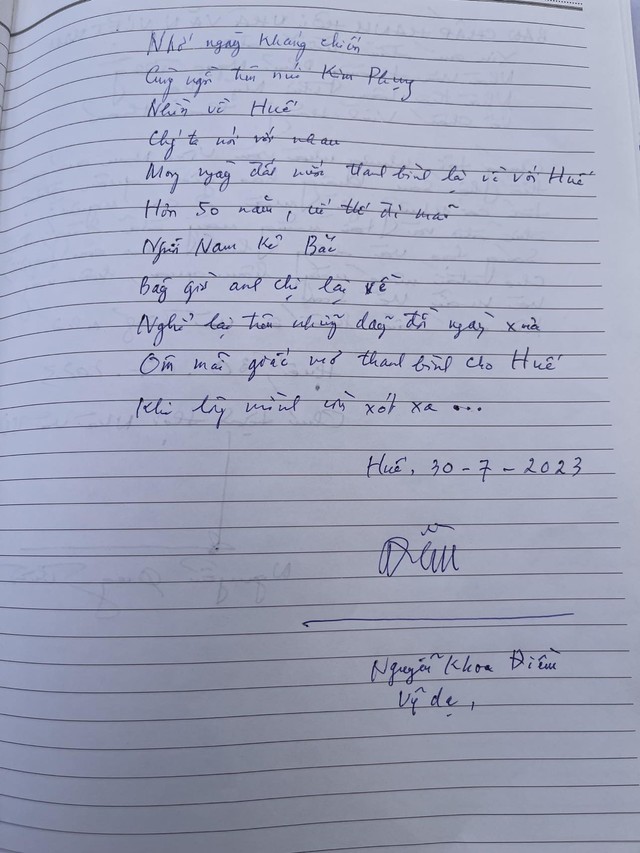 Nhớ ngày kháng chiến
Cùng ngồi trên núi Kim Phụng
Nhìn về Huế
Chúng ta nói với nhau
Mong ngày đất nước thanh bình lại về với Huế
Hơn 50 năm, đi mãi
Người Nam kẻ Bắc
Bây giờ anh chị lại về
Nghĩ lại trên những dãy đồi ngày xưa
Ôm mãi giấc mơ thanh bình cho Huế
Khi lòng mình còn xót xa ...
Huế, 30-7-2023
Điềm
Nguyễn Khoa Điềm
Vỹ dạ,